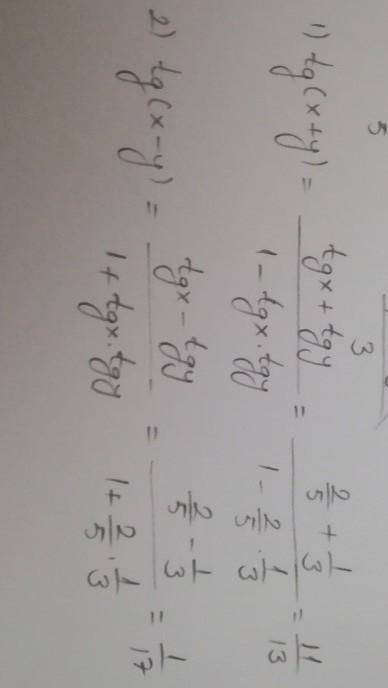 5
3
1) tg(x+y) = \frac{tgx + tgy}{1 - tgx \cdot tgy} = \frac{\frac{2}{5} + \frac{1}{3}}{1 - \frac{2}{5} \cdot \frac{1}{3}} = \frac{11}{13}
2) tg(x-y) = \frac{tgx - tgy}{1 + tgx \cdot tgy} = \frac{\frac{2}{5} - \frac{1}{3}}{1 + \frac{2}{5} \cdot \frac{1}{3}} = \frac{1}{17}